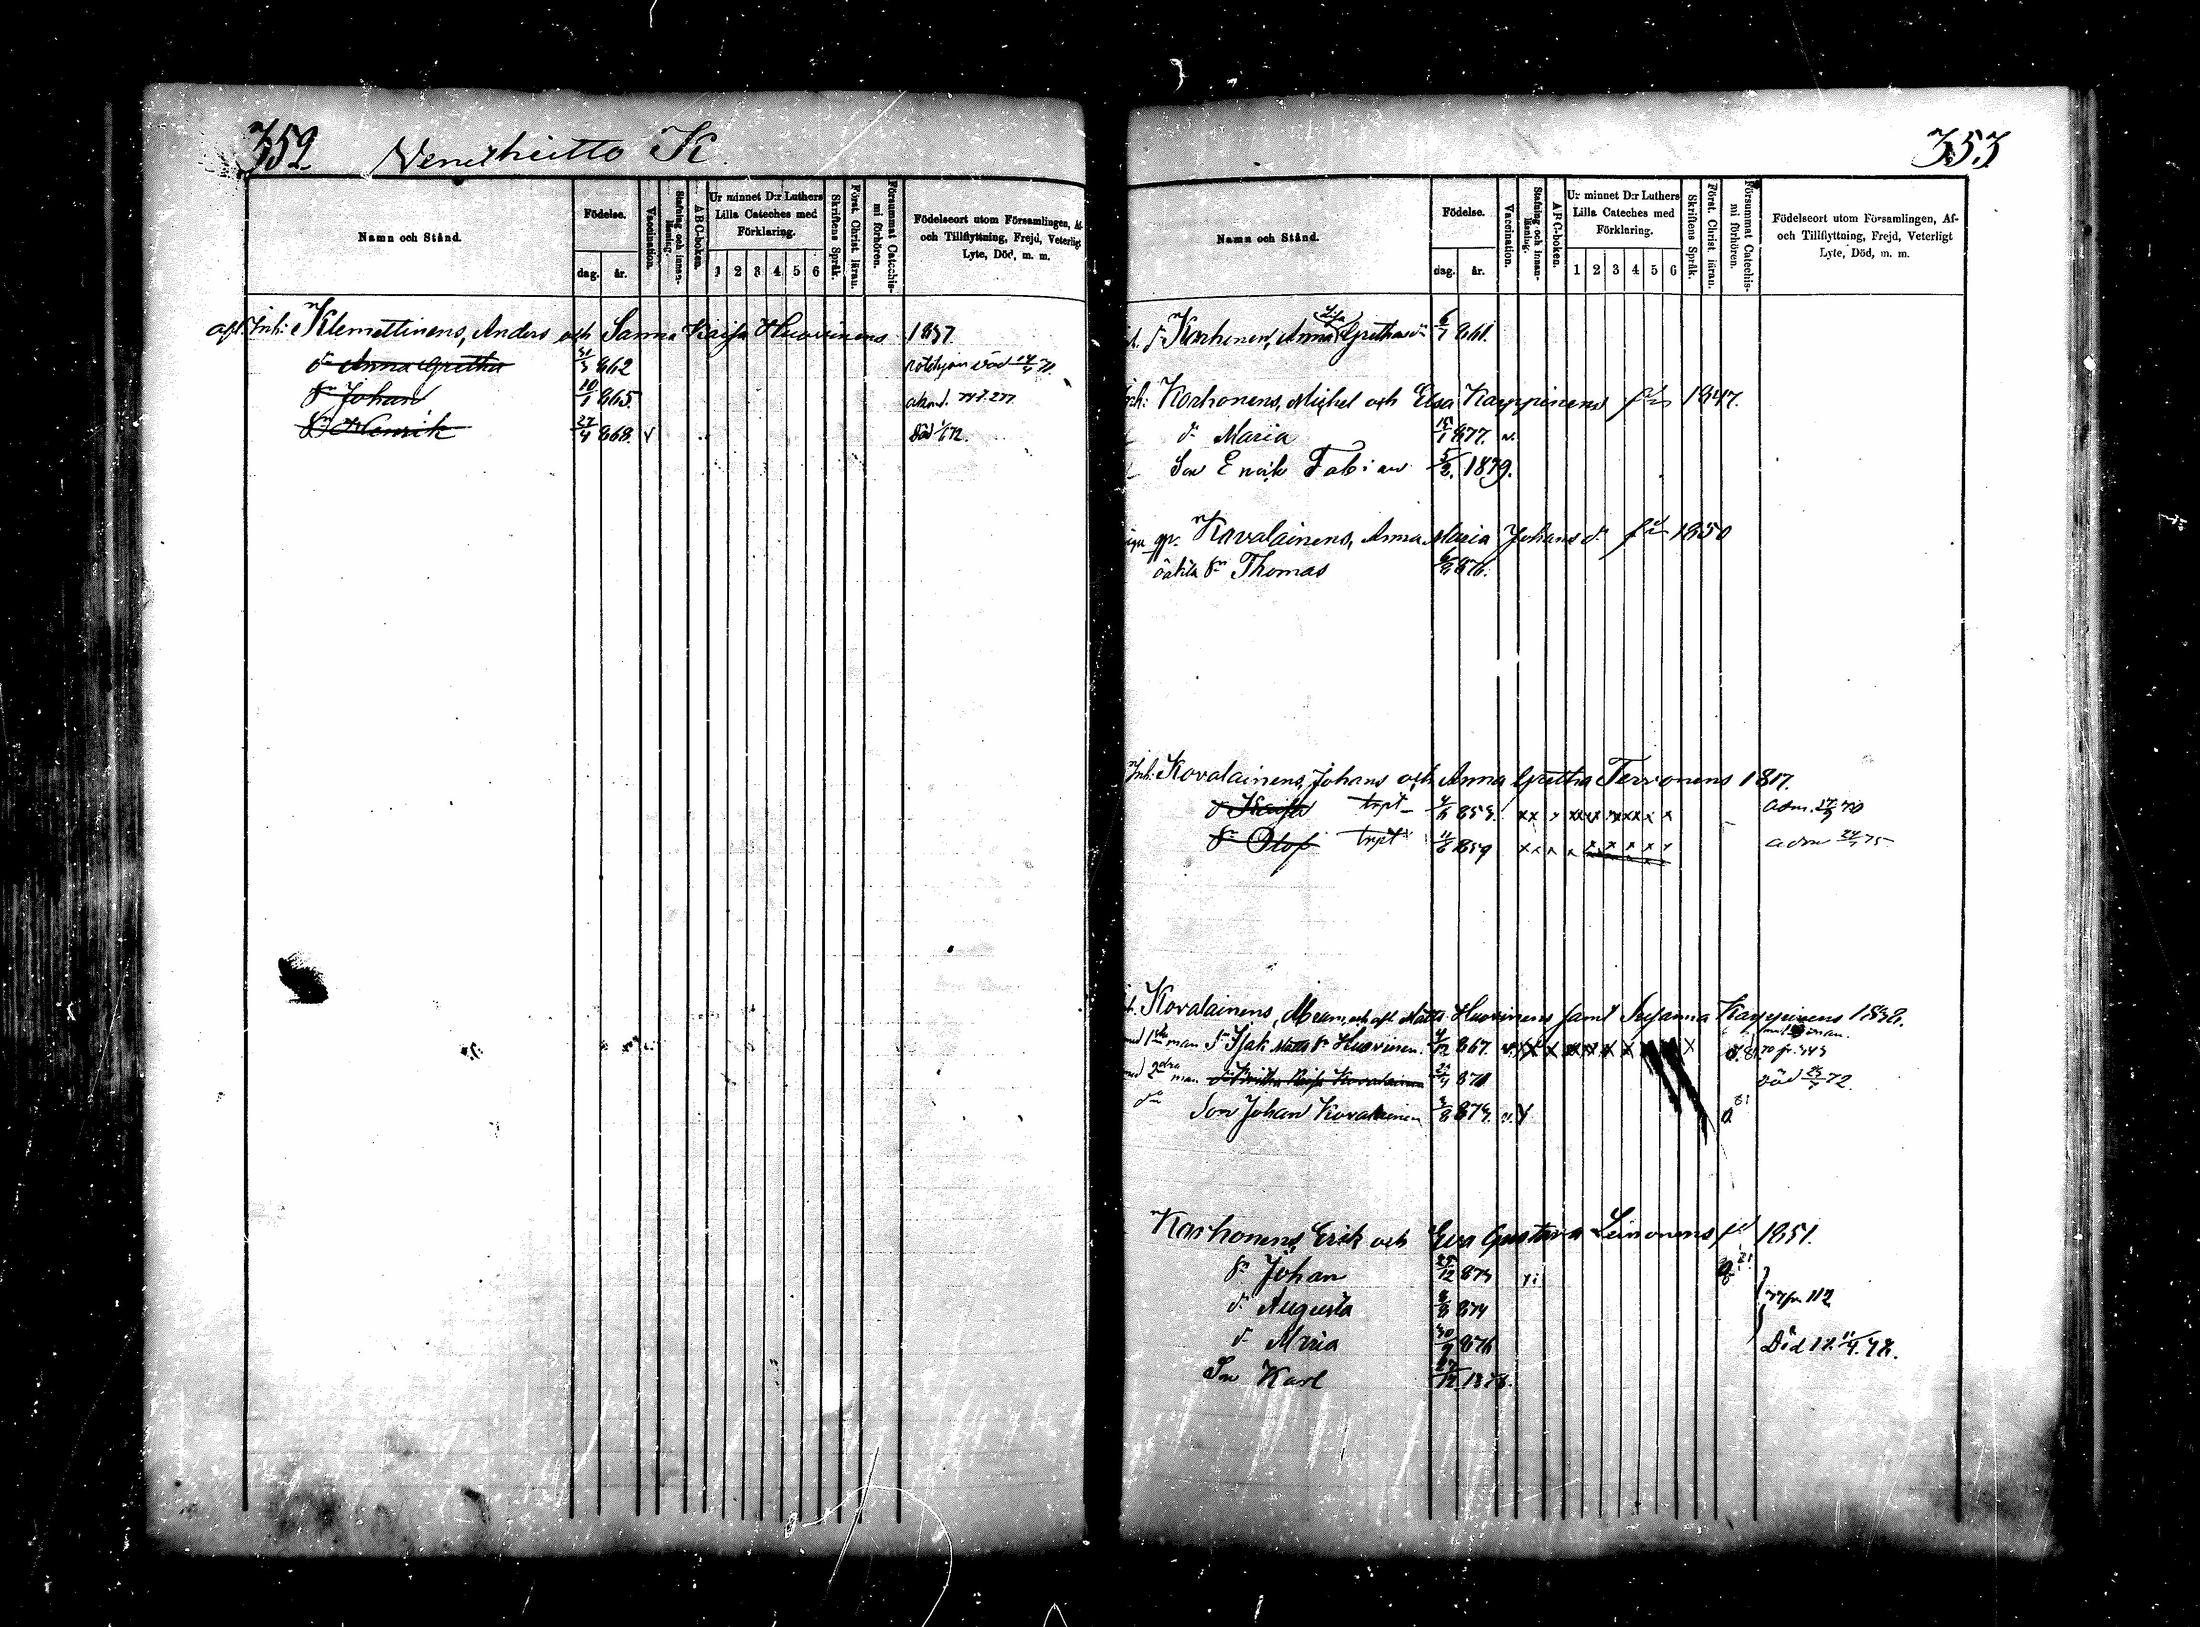 352 Venehiitto K.
Namn och Stånd.
Födelse.
dag. år.
Vaccination.
Stafning och innan-läsning.
A B C-boken.
Ur minnet D:r Luthers Lilla Cateches med Förklaring.
1 2 3 4 5 6
Skriftens Språk.
Först. Christ. läran.
Försummat Catechis-mi förhören.
Födelseort utom Församlingen, Af- och Tillflyttning, Frejd, Veterligt Lyte, Död, m. m.
Inh: Klemettinens, Anders och Sanna Kaisa Huovinens 1837.
dr Anna Gretha 31/3 862 död 14/4 71.
sn Johan 10/1 865
sn Henrik 27/4 868 v Död 1/6 72.
353
Namn och Stånd.
Födelse.
dag. år.
Vaccination.
Stafning och innan-läsning.
A B C-boken.
Ur minnet D:r Luthers Lilla Cateches med Förklaring.
1 2 3 4 5 6
Skriftens Språk.
Först. Christ. läran.
Försummat Catechis-mi förhören.
Födelseort utom Församlingen, Af- och Tillflyttning, Frejd, Veterligt Lyte, Död, m. m.
Korhonen, Anna Lisa Grethas dr 6/7 861.
Inh: Korhonens, Michel och Elsa Karppinens 1847.
dr Maria 15/1 877. v.
Son Enrik Fabian 5/2. 1879.
Kovalainens, Anna Maria Johans dr 1850
oäkta sn Thomas 876.
Inh: Kovalainens, Johans och Anna Gretha Tervonens 1817.
dr Kaisa trpt 853. x x x x x x x x x x x adm. 17/9 70
sn Olof trpt 859 x x x x x x x x x adm 24/5 75
Kovalainens, Abram, och afl. Matts Huovinens samt Susanna Karppinens 1838.
med 1sta man sn Isak Matts sn Huovinen. 4/12 867. v x x x x x x x x
med 2dra man dr Kaisa Kovalainen 871 död 72.
do Son Johan Kovalainen 3/8 873. v. Y a 81
Korhonens, Erik och Eva Gustava Leinonens 1851.
sn Johan 25/12 873 a 21
dr Augusta 874 fr 112
dr Maria 30/9 876 Död 11/4. 78.
Son Karl 27/12 1878.